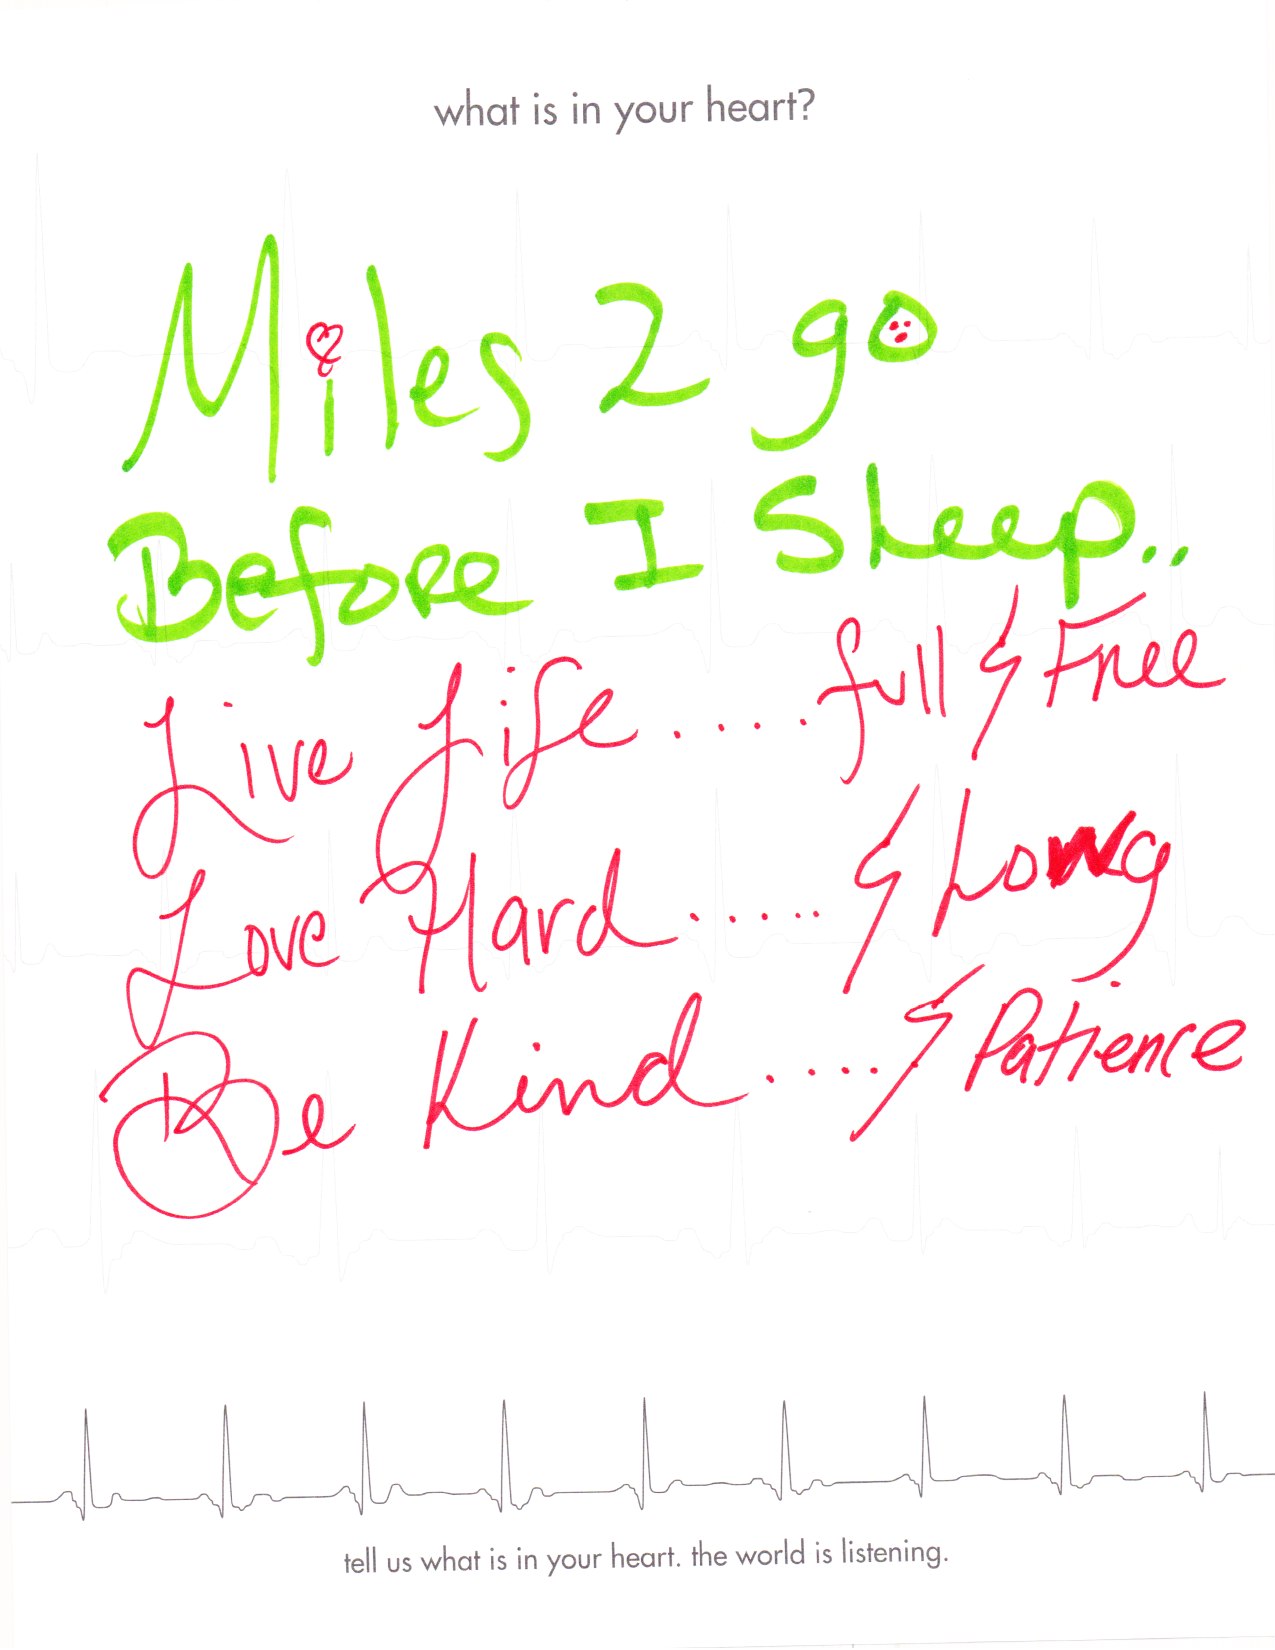 what is in your heart?
Miles 2 go
Before I Sleep..
Live Life.....full & Free
Love Hard......& Long
Be Kind.....& Patience
tell us what is in your heart. the world is listening.